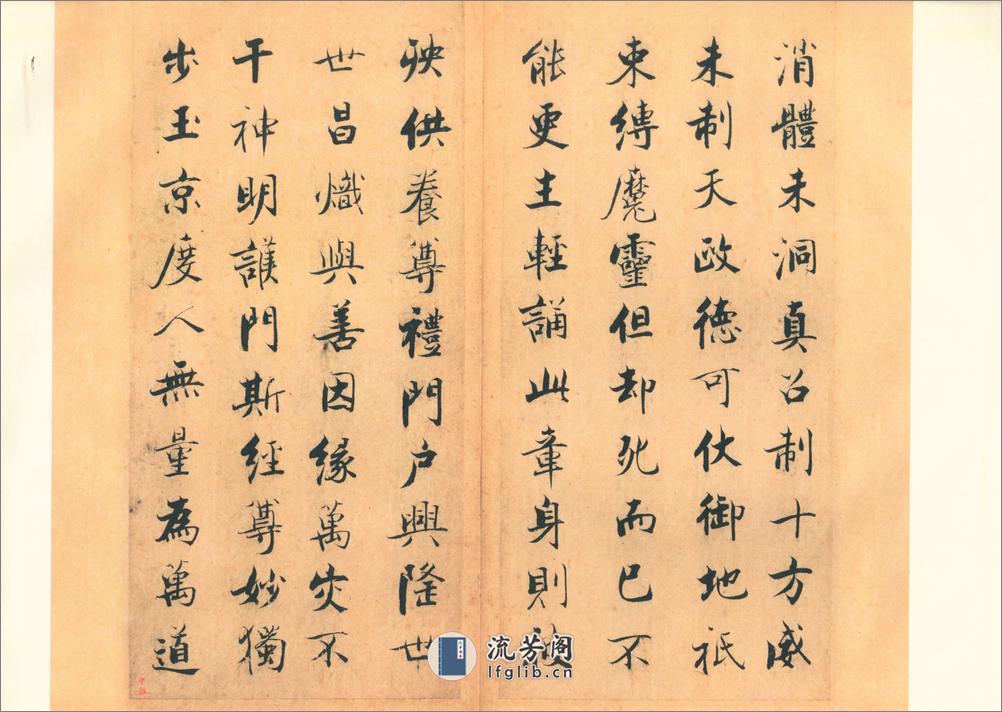 消體未洞真召制十方威
未制天政德可伏御地祇
束縛魔靈但却死而已不
能更生輕誦此章身則被
殃供養尊禮門戶興隆世
世昌熾與善因緣萬灾不
干神明護門斯經尊妙獨
步玉京度人無量為萬道
流芳阁
lfglib.cn